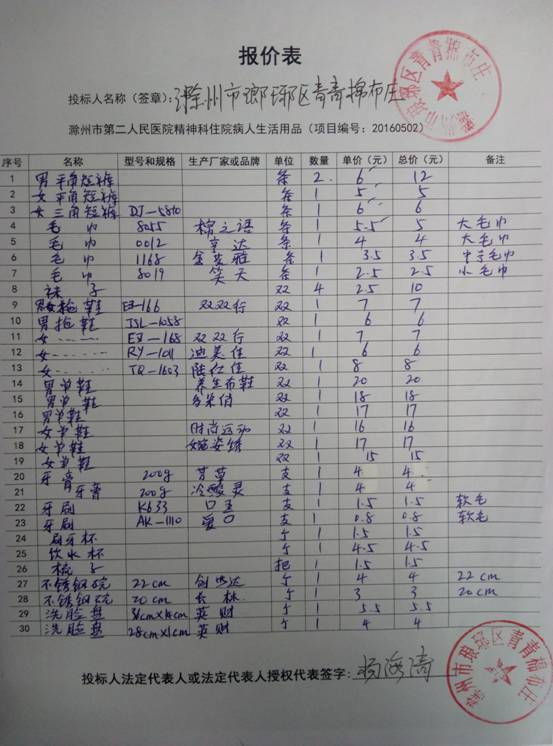 报价表
投标人名称（签章）：滁州市琅琊区青青棉布庄
滁州市第二人民医院精神科住院病人生活用品（项目编号：20160502）
序号 名称 型号和规格 生产厂家或品牌 单位 数量 单价（元） 总价（元） 备注
1 男平角短裤 条 2 6 12
2 女平角短裤 条 1 5 5
3 女三角短裤 DJ-5810 条 1 6 6
4 毛巾 8055 棉之语 条 1 5.5 5 大毛巾
5 毛巾 0012 条 1 4 4 大毛巾
6 毛巾 1168 金英雅 条 1 3.5 3.5 毛巾
7 毛巾 8019 笑天 条 1 2.5 2.5 小毛巾
8 袜子 双 4 2.5 10
9 男女拖鞋 双双行 双 1 7 7
10 男拖鞋 双 1 6 6
11 女 双双行 双 1 7 7
12 女 双 1 6 6
13 女 双 1 8 8
14 男单鞋 养生布鞋 双 1 20 20
15 男单鞋 双 1 18 18
16 男单鞋 双 1 17 17
17 女单鞋 时尚运动 双 1 16 16
18 女单鞋 婉姿绣 双 1 17 17
19 女单鞋 双 1 15 15
20 牙膏 200g 芳草 支 1 4 4
21 牙膏 200g 冷酸灵 支 1 4 4
22 牙刷 K633 支 1 1.5 1.5 软毛
23 牙刷 AK-1110 支 1 0.8 0.8 软毛
24 刷牙杯 个 1 1.5 1.5
25 饮水杯 个 1 4.5 4.5
26 梳子 把 1 1.5 1.5
27 不锈钢碗 22cm 个 1 4 4 22cm
28 不锈钢碗 20cm 个 1 3 3 20cm
29 洗脸盆 英财 个 1 5.5 5.5
30 洗脸盆 英财 个 1 4 4
投标人法定代表人或法定代表人授权代表签字：
滁州市琅琊区青青棉布庄
滁州市琅琊区青青棉布庄